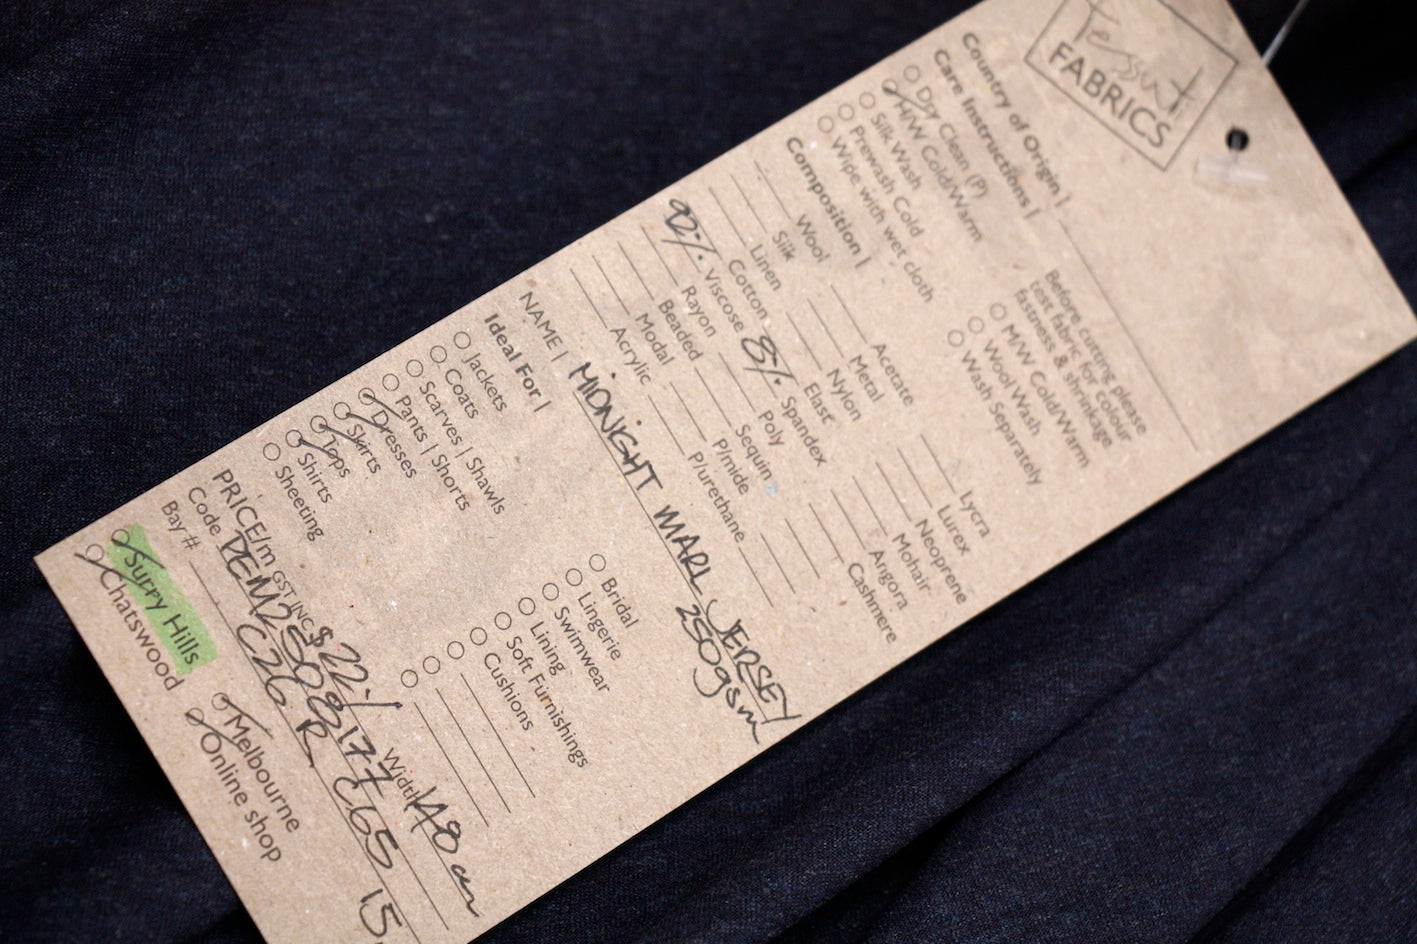 Tessuti
FABRICS
Country of Origin |
Care Instructions |
Dry Clean (P)
H/W Cold/Warm
Silk Wash
Prewash Cold
Wipe with wet cloth
Before cutting please
test fabric for colour
fastness & shrinkage
M/W Cold/Warm
Wool Wash
Wash Separately
Composition |
Wool
Silk
Linen
Cotton
92% Viscose
Rayon
Beaded
Modal
Acrylic
Acetate
Metal
Nylon
Elast
8% Spandex
Poly
Sequin
P/mide
P/urethane
Lycra
Lurex
Neoprene
Mohair
Angora
Cashmere
NAME | MIDNIGHT MARL JERSEY
250gsm
Ideal For |
Jackets
Coats
Scarves | Shawls
Pants | Shorts
Dresses
Skirts
Tops
Shirts
Sheeting
Bridal
Lingerie
Swimwear
Lining
Soft Furnishings
Cushions
PRICE/m GST INC $22/ Width 148cm
Code
Bay # C26 R
Surry Hills
Chatswood
Melbourne
Online shop